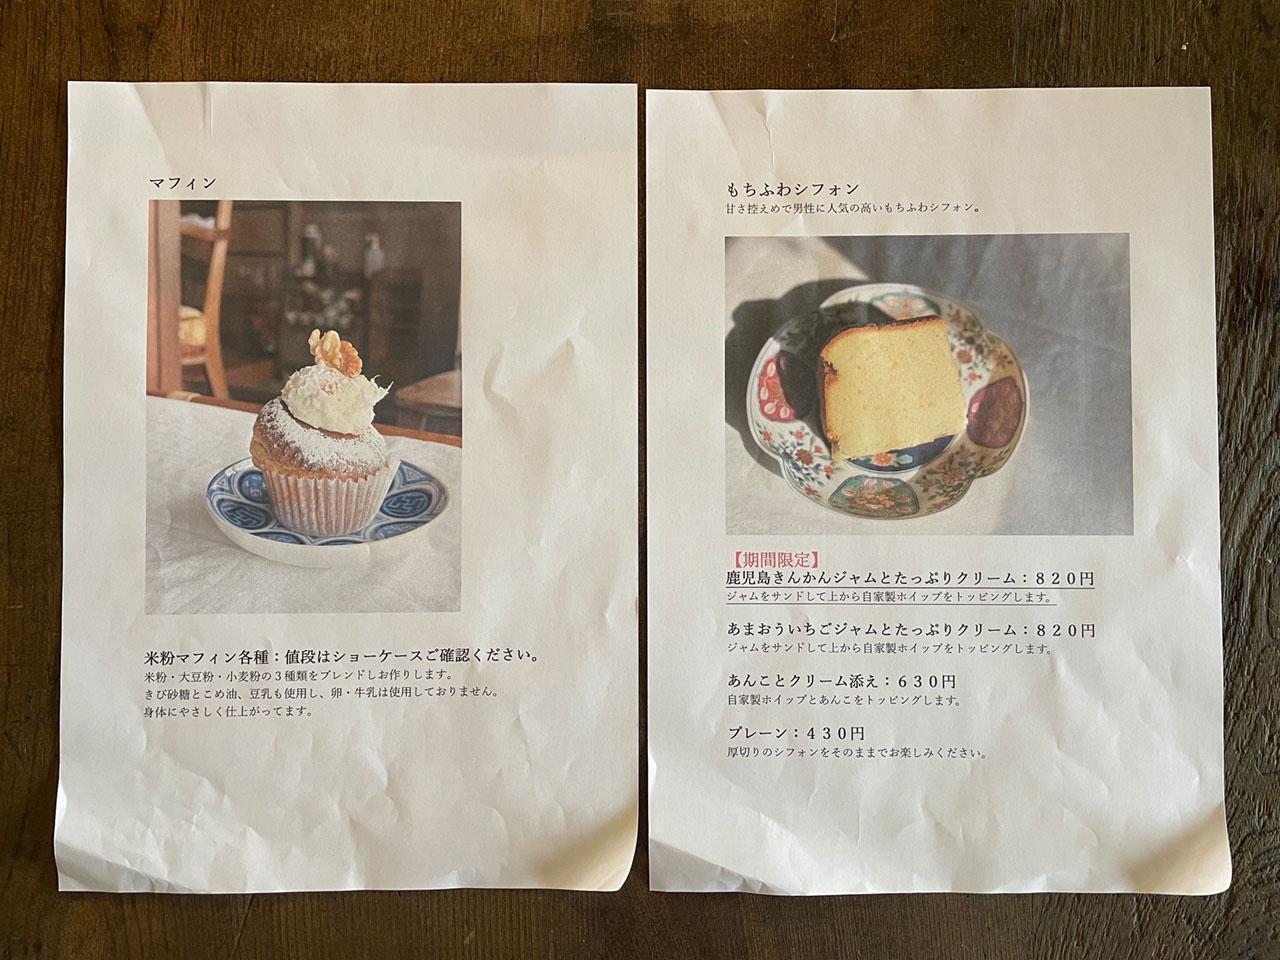 マフィン
米粉マフィン各種：値段はショーケースご確認ください。
米粉・大豆粉・小麦粉の３種類をブレンドしお作りします。
きび砂糖とこめ油、豆乳も使用し、卵・牛乳は使用しておりません。
身体にやさしく仕上がってます。
もちふわシフォン
甘さ控えめで男性に人気の高いもちふわシフォン。
【期間限定】
鹿児島きんかんジャムとたっぷりクリーム：８２０円
ジャムをサンドして上から自家製ホイップをトッピングします。
あまおういちごジャムとたっぷりクリーム：８２０円
ジャムをサンドして上から自家製ホイップをトッピングします。
あんことクリーム添え：６３０円
自家製ホイップとあんこをトッピングします。
プレーン：４３０円
厚切りのシフォンをそのままでお楽しみください。